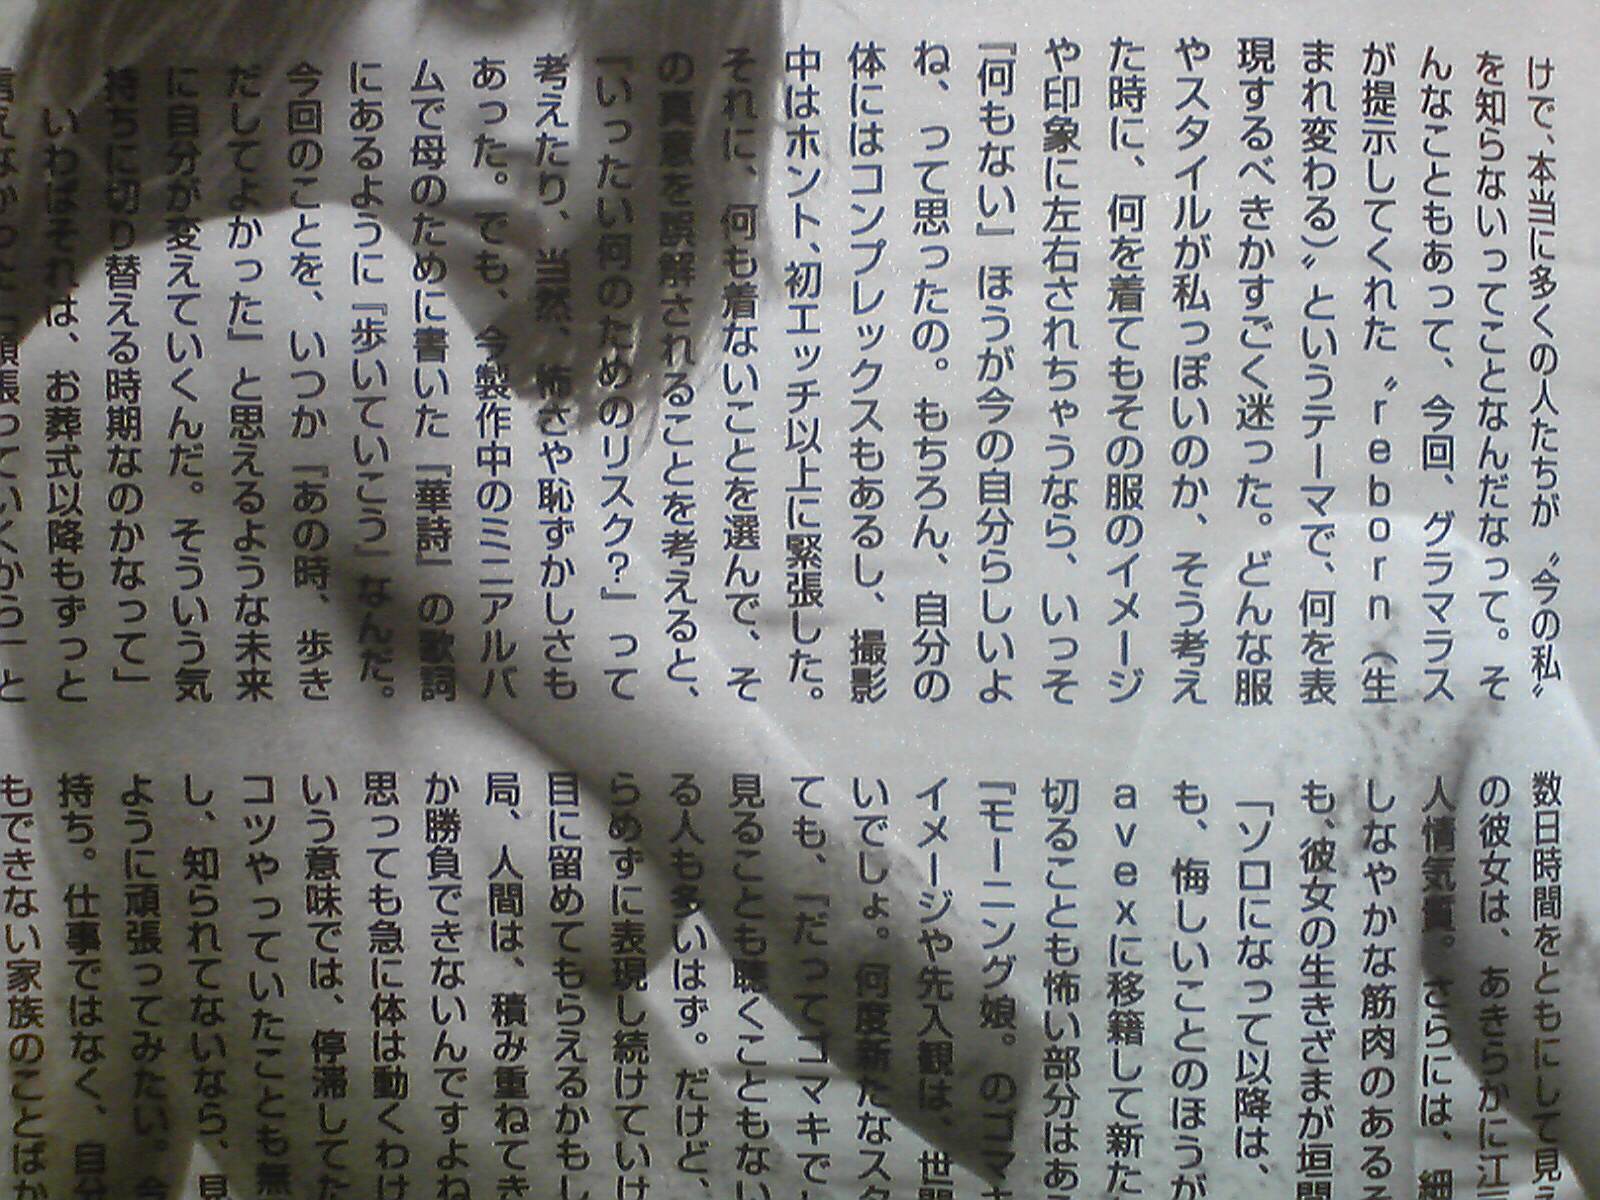 けで、本当に多くの人たちが〝今の私〟
を知らないってことなんだなって。そ
んなこともあって、今回、グラマラス
が提示してくれた〝reborn（生
まれ変わる）〟というテーマで、何を表
現するべきかすごく迷った。どんな服
やスタイルが私っぽいのか、そう考え
た時に、何を着てもその服のイメージ
や印象に左右されちゃうなら、いっそ
『何もない』ほうが今の自分らしいよ
ね、って思ったの。もちろん、自分の
体にはコンプレックスもあるし、撮影
中はホント、初エッチ以上に緊張した。
それに、何も着ないことを選んで、そ
の真意を誤解されることを考えると、
『いったい何のためのリスク？』って
考えたり、当然、怖さや恥ずかしさも
あった。でも、今製作中のミニアルバ
ムで母のために書いた『華詩』の歌詞
にあるように『歩いていこう』なんだ。
今回のことを、いつか『あの時、歩き
だしてよかった』と思えるような未来
に自分が変えていくんだ。そういう気
持ちに切り替える時期なのかなって」
いわばそれは、お葬式以降もずっと
言えなかった「頑張っていくから」と
数日時間をともにして見え
の彼女は、あきらかに江
人情気質。さらには、細
しなやかな筋肉のある
も、彼女の生きざまが垣間
「ソロになって以降は、
も、悔しいことのほうが
avexに移籍して新た
切ることも怖い部分はあ
『モーニング娘。のゴマキ
イメージや先入観は、世間
いでしょ。何度新たなスタ
ても、『だってゴマキでし
見ることも聴くこともない
る人も多いはず。だけど、
らめずに表現し続けていけ
目に留めてもらえるかもし
局、人間は、積み重ねてき
か勝負できないんですよね
思っても急に体は動くわけ
いう意味では、停滞してた
コツやっていたことも無
し、知られてないなら、見
ように頑張ってみたい。今
持ち。仕事ではなく、自分
もできない家族のことばか